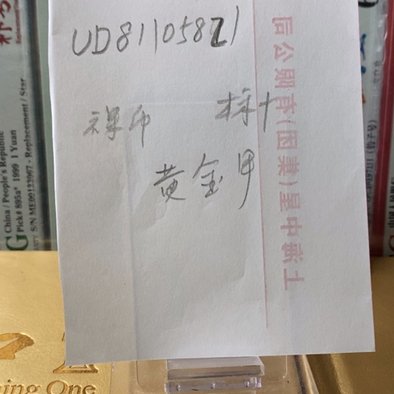 UD81105821
裸币 标十
黄金甲
上海中星(集团)有限公司
China / People's Republic
Pick# 895a* 1999 1 Yuan
Replacement / Star
ning One